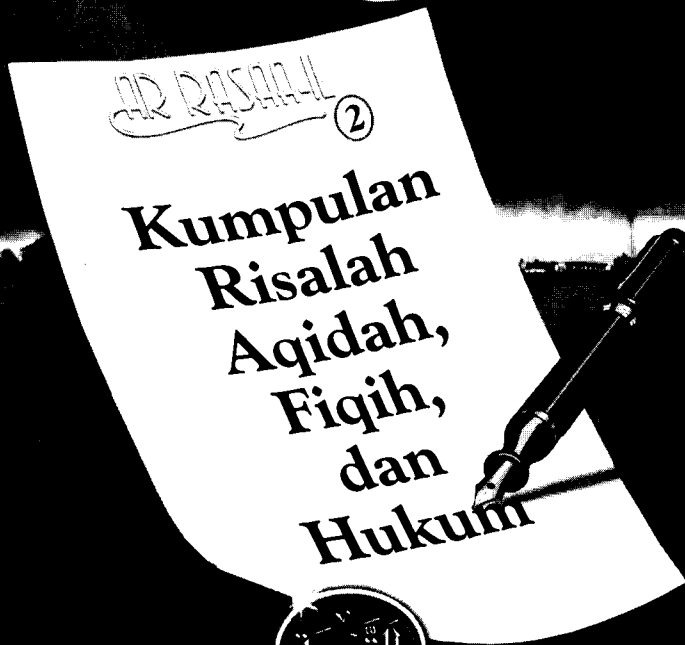 AR RASAA-IL
2
Kumpulan
Risalah
Aqidah,
Fiqih,
dan
Hukum